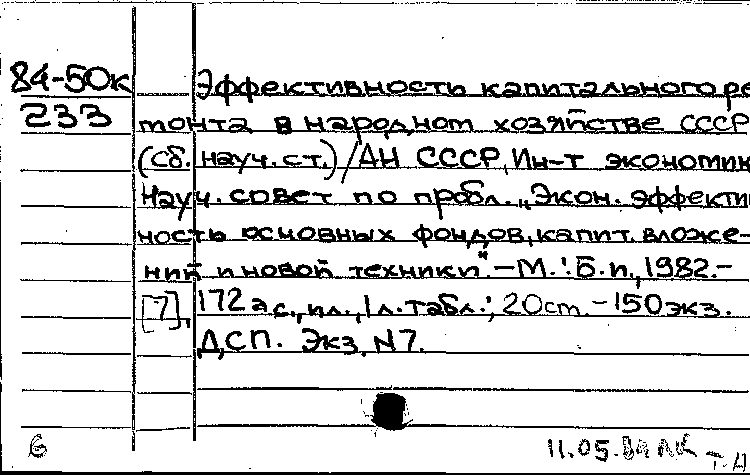 84-50к Эффективность капитального ре
233 монта в народном хозяйстве СССР
(Сб. науч. ст.)/АН СССР, Ин-т экономик
Науч. совет по пробл. „Экон. эффекти
ность основных фондов, капит. вложе-
ний и новой техники".-М.: Б.и., 1982.-
[7], 172а с., ил., 1 л. табл.; 20 см. -150 экз.
ДСП. Экз. N7.
6 11.05.84